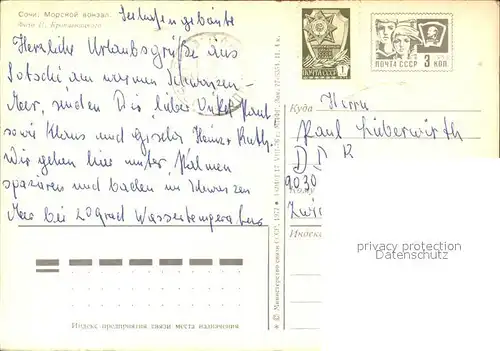 Сочи. Морской вокзал.
Seehafengebäude
Herrliche Urlaubsgrüße aus
Sotschi am warmen Schwarzen-
Meer, senden Dir lieber Onkel Paul
sowie Klaus und Gisela, Heiner, Ruth.
Wir gehen hier unter Palmen
spazieren und baden im Schwarzen
Meer bei 20 grad Wassertemperatur
ПОЧТА СССР 1
ПОЧТА СССР 3 КОП
Куда Herrn
Paul Lieberwirth
DDR
9030
Кому
Zwi
Индекс
privacy protection
Datenschutz
Индекс предприятия связи места назначения
© Министерство связи СССР, 1977